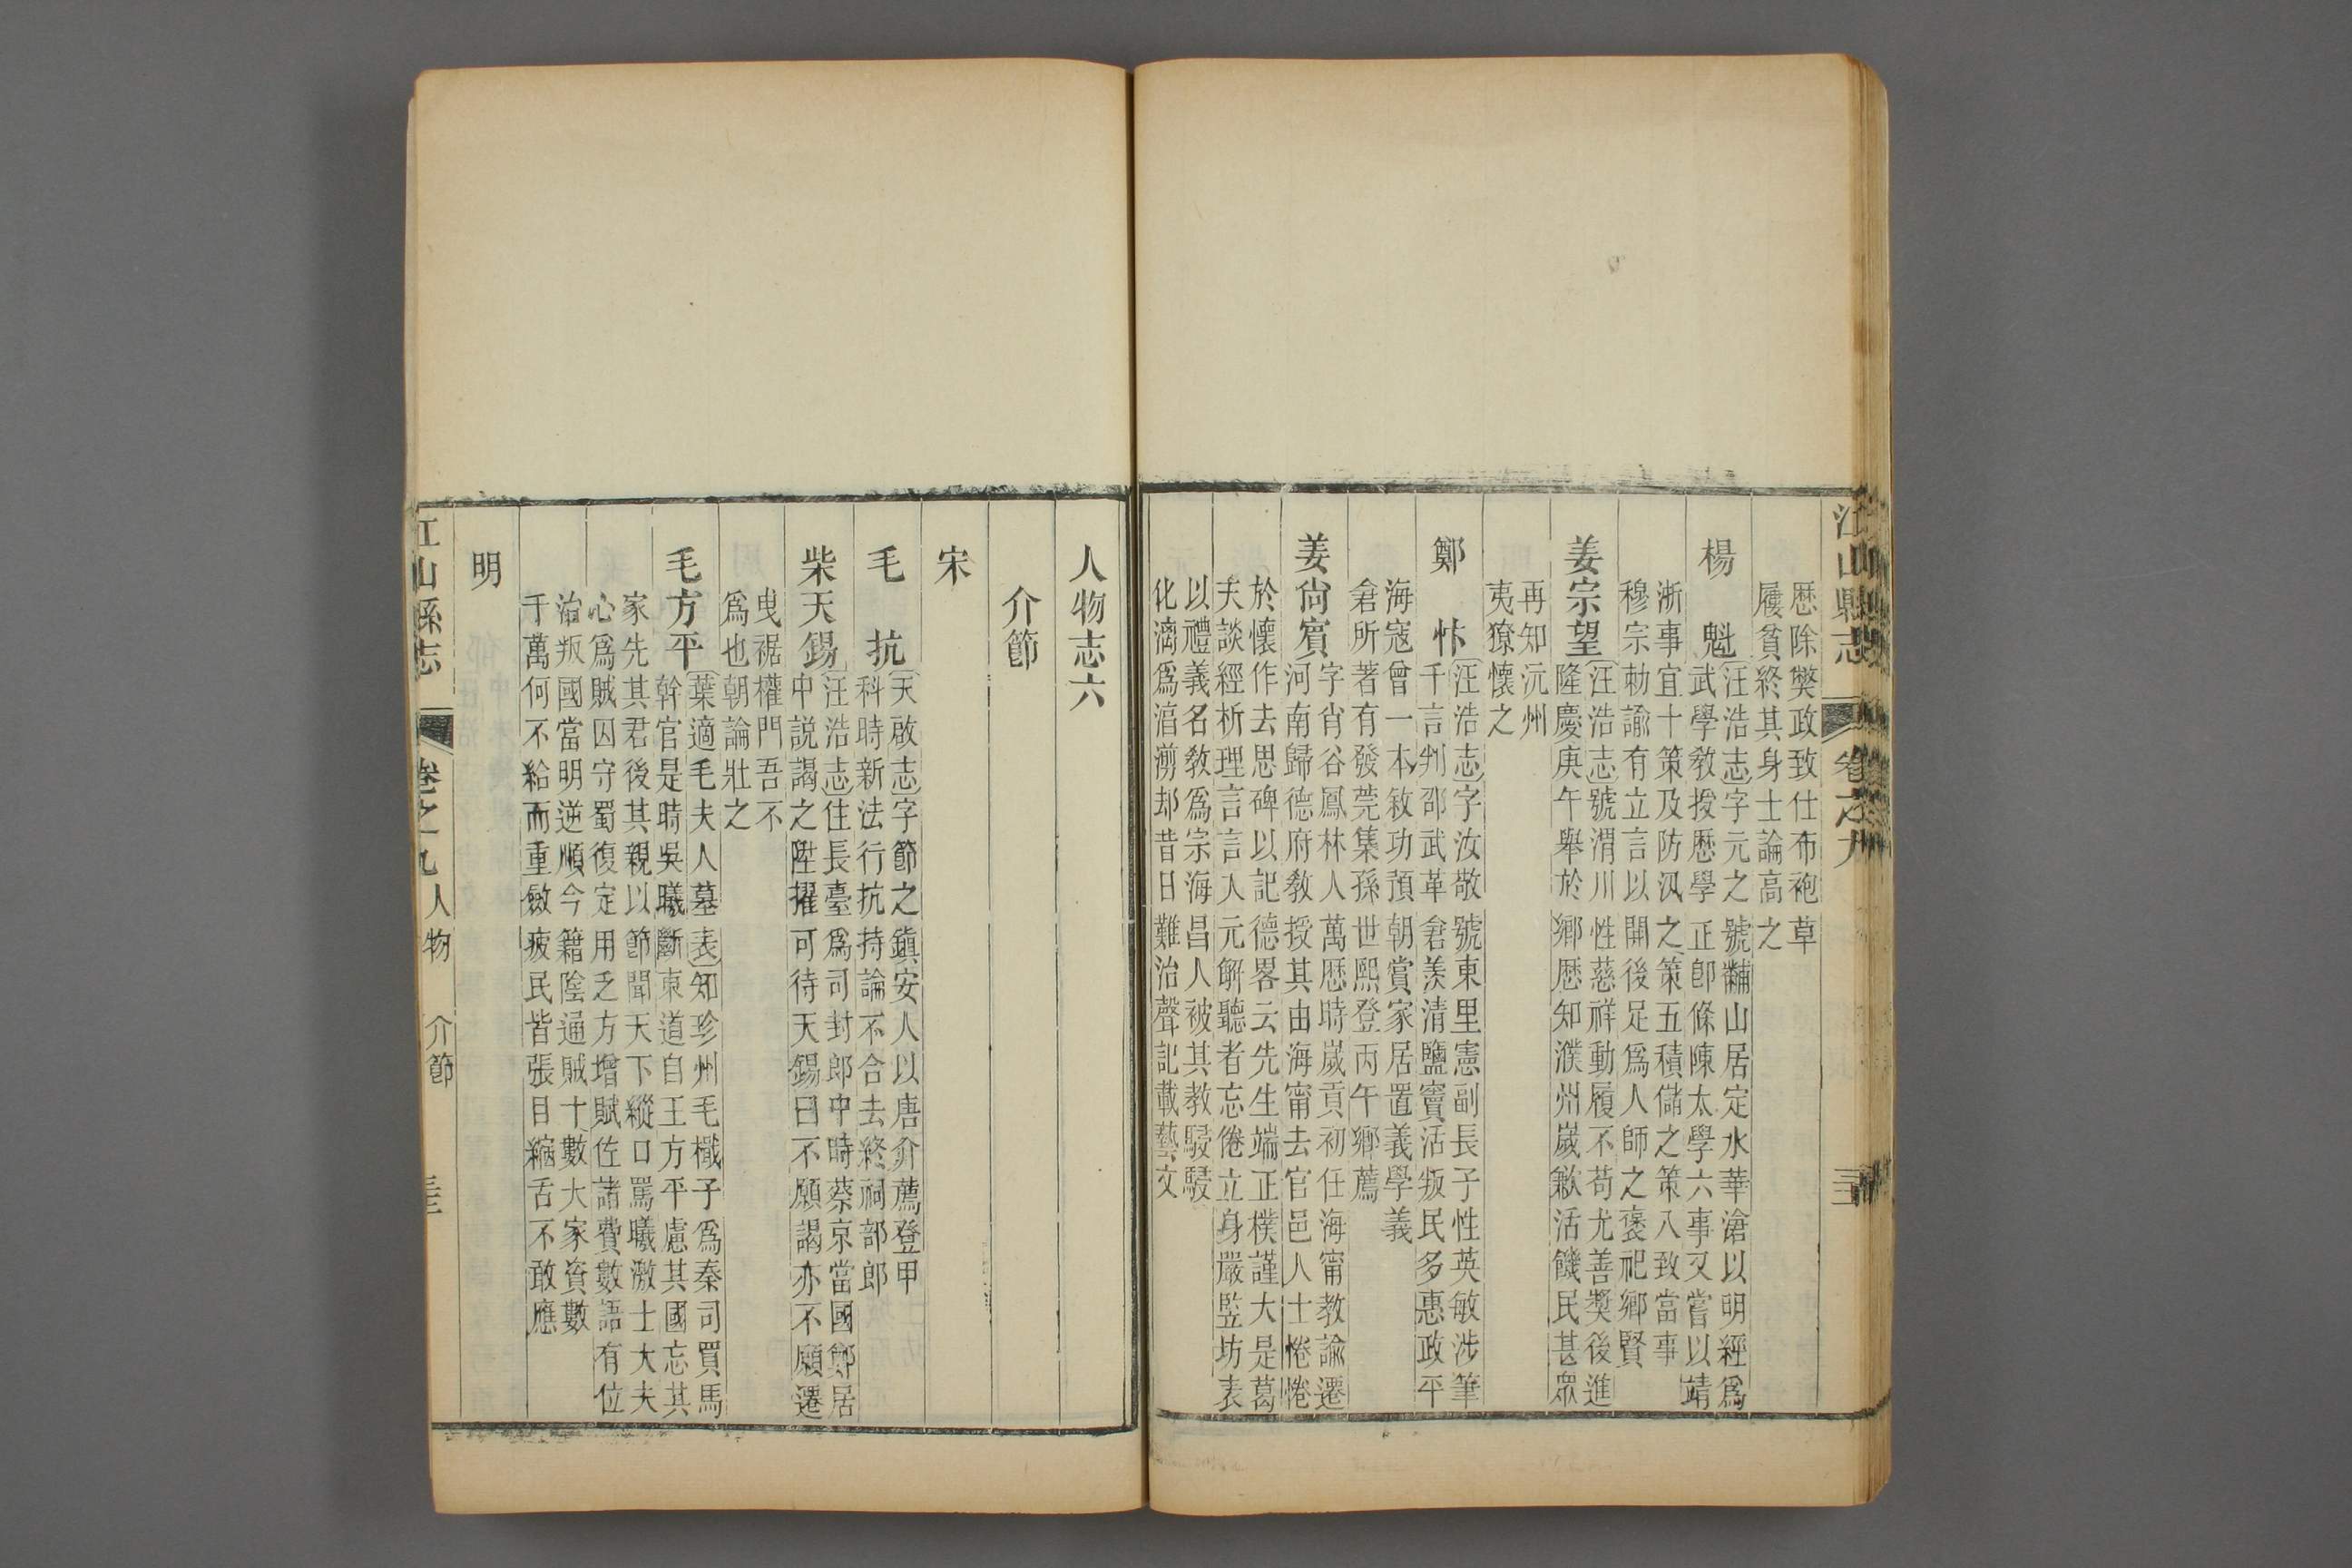 江山縣志 卷之九 三二
歷除獘政致仕布袍草
履貧終其身士論高之
楊 魁
汪浩志字元之號黼山居定水華滄以明經爲
武學敎授歷學正卽條陳太學六事又嘗以靖
浙事宜十策及防汛之策五積儲之策八致當事
穆宗勅諭有立言以開後足爲人師之褒祀鄉賢
姜宗望
汪浩志號渭川性慈祥動履不苟尤善獎後進
隆慶庚午舉於鄉歷知濮州歲歉活饑民甚眾
再知沅州
夷獠懷之
鄭 忭
汪浩志字汝敬號東里憲副長子性英敏涉筆
千言判邵武革倉羨清鹽竇活叛民多惠政平
海寇曾一本敘功預朝賞家居置義學義
倉所著有發莞集孫世熙登丙午鄉薦
姜尙賓
字肖谷鳳林人萬歷時歲貢初任海甯教諭遷
河南歸德府敎授其由海甯去官邑人士惓惓
於懷作去思碑以記德畧云先生端正樸謹大是葛
夫談經析理言言人元解聽者忘倦立身嚴監坊表
以禮義名敎爲宗海昌人被其教駸駸
化漓爲涫淛却昔日難治聲記載藝文
人物志六
介節
宋
毛 抗
天啟志字節之鎮安人以唐介薦登甲
科時新法行抗持論不合去終祠部郎
柴天錫
汪浩志住長臺爲司封郎中時蔡京當國鄭居
中説謁之陞擢可待天錫曰不願謁亦不願遷
曵裾權門吾不
爲也朝論壯之
毛方平
葉適毛夫人墓表知珍州毛檝子爲秦司買馬
幹官是時吳曦斷東道自王方平慮其國忘其
家先其君後其親以節聞天下縱口罵曦激士大夫
心爲賊囚守蜀復定用乏方增賦佐諸費數語有位
治叛國當明逆順今籍陰通賊十數大家資數
千萬何不給而重斂疲民皆張目縮舌不敢應
明
江山縣志 卷之九 人物 介節 三三